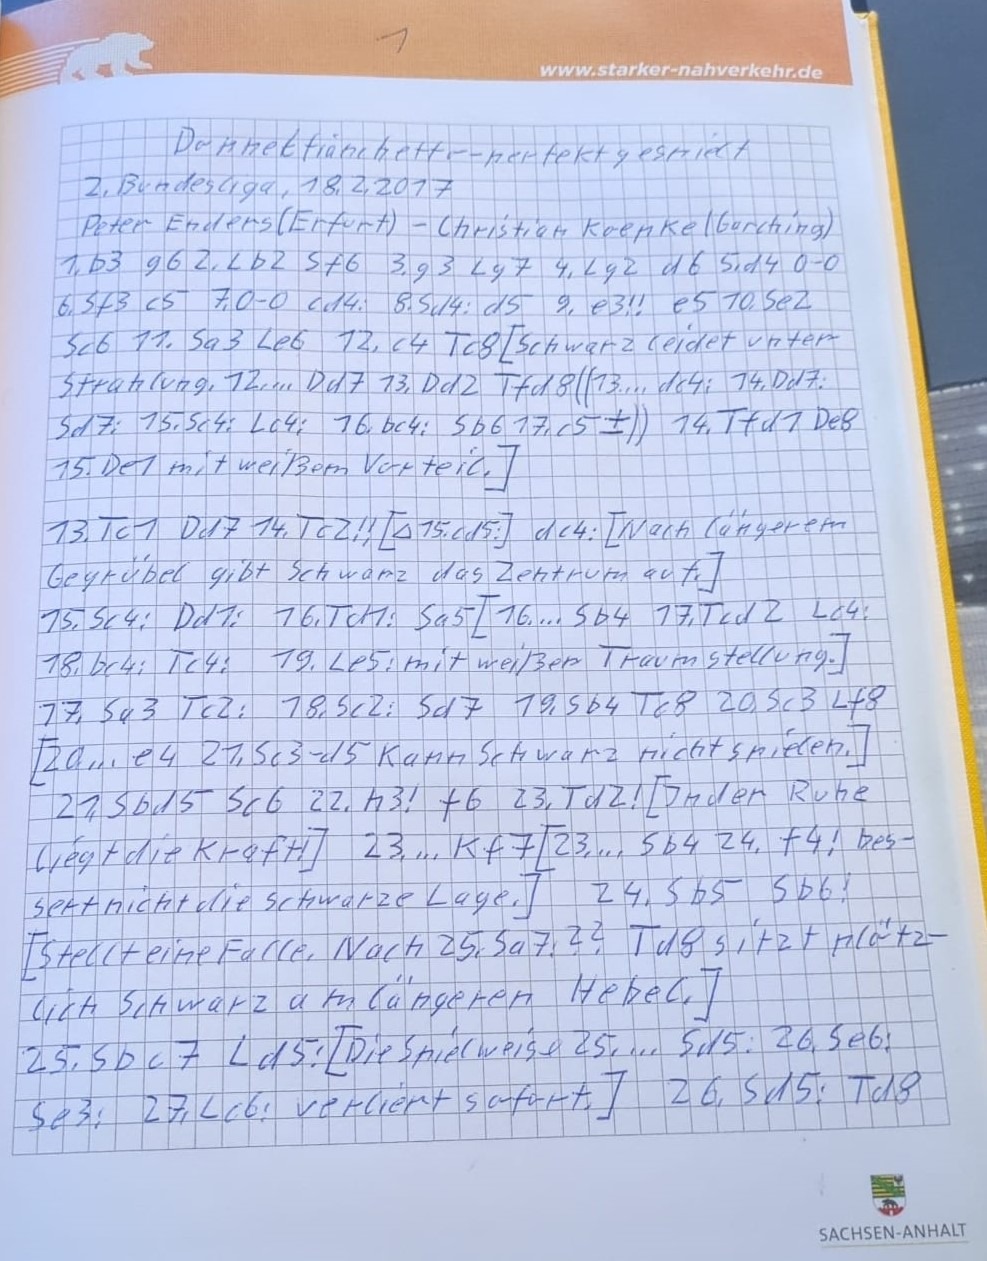 1
www.starker-nahverkehr.de
Doppelfianchetto-perfekt gespielt
2. Bundesliga, 18.2.2017
Peter Enders (Erfurt) - Christian Koepke (Garching)
1.b3 g6 2.Lb2 Sf6 3.g3 Lg7 4.Lg2 d6 5.d4 0-0
6.Sf3 c5 7.0-0 cd4: 8.Sd4: d5 9.e3!! e5 10.Se2
Sc6 11.Sa3 Le6 12.c4 Tc8 [Schwarz leidet unter
Strahlung. 12.... Dd7 13.Dd2 Tfd8 ((13... dc4: 14.Dd7:
Sd7: 15.Sc4: Lc4: 16.bc4: Sb6 17.c5 ±)) 14.Tfd1 De8
15.De1 mit weißem Vorteil.]
13.Tc1 Dd7 14.Tc2!! [Δ 15.cd5:] dc4: [Nach längerem
Gegrübel gibt Schwarz das Zentrum auf.]
15.Sc4: Dd1: 16.Td1: Sa5 [16.... Sb4 17.Tcd2 Lc4:
18.bc4: Tc4: 19.Le5: mit weißer Traumstellung.]
17.Sa3 Tc2: 18.Sc2: Sd7 19.Sb4 Tc8 20.Sc3 Lf8
[20... e4 21.Sc3-d5 kann Schwarz nicht spielen.]
21.Sbd5 Sc6 22.h3! f6 23.Td2! [In der Ruhe
liegt die Kraft!] 23.... Kf7 [23.... Sb4 24.f4! bes-
sert nicht die schwarze Lage.] 24.Sb5 Sb6!
[Stellt eine Falle. Nach 25.Sa7:?? Td8 sitzt plötz-
lich Schwarz am längeren Hebel.]
25.Sbc7 Ld5: [Die Spielweise 25.... Sd5: 26.Se6:
Se3: 27.Lc6: verliert sofort.] 26.Sd5: Td8
SACHSEN-ANHALT